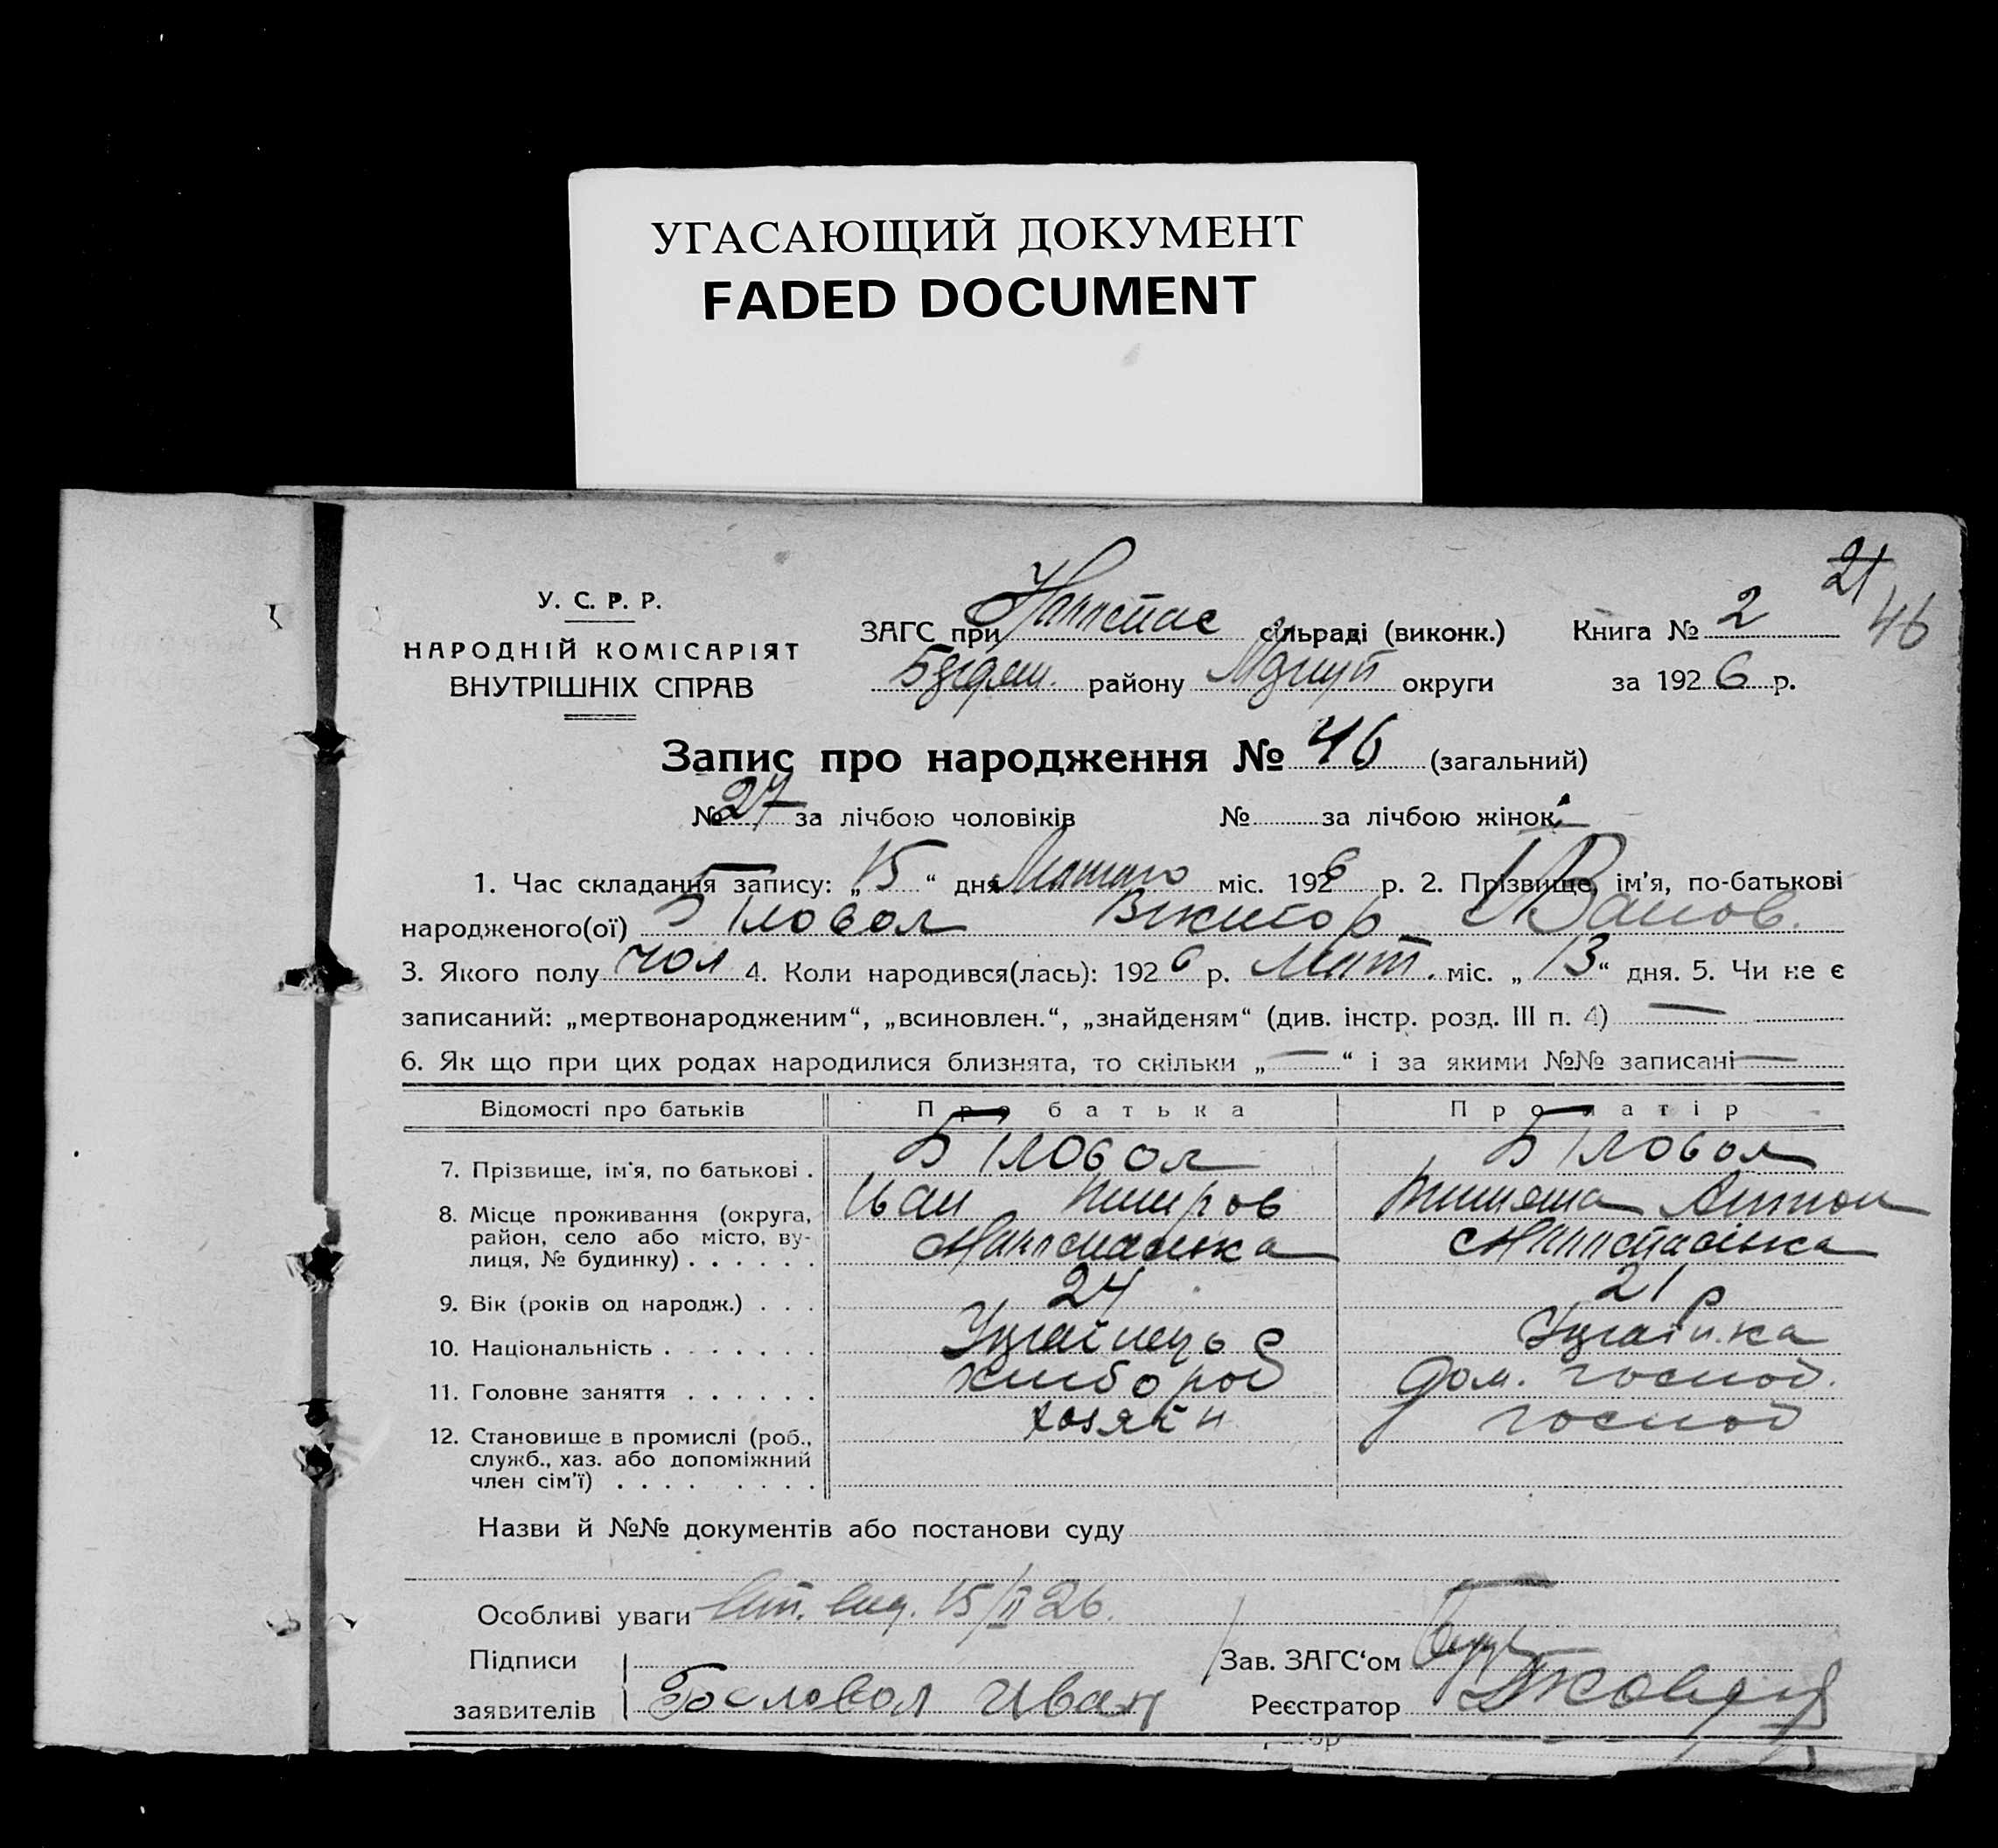 УГАСАЮЩИЙ ДОКУМЕНТ
FADED DOCUMENT
21
46
У. С. Р. Р.
НАРОДНІЙ КОМІСАРІЯТ
ВНУТРІШНІХ СПРАВ
ЗАГС при сільраді (виконк.)
району округи
Книга № 2
за 1926 р.
Запис про народження № 46 (загальний)
№ 27 за лічбою чоловіків № за лічбою жінок
1. Час складання запису: „15“ дня Лютого міс. 1926 р. 2. Прізвище, ім’я, по-батькові
народженого(ої) Біловол Віктор Іванов.
3. Якого полу чол 4. Коли народився(лась): 1926 р. Лют. міс. „13“ дня. 5. Чи не є
записаний: „мертвонародженим“, „всиновлен.“, „знайденям“ (див. інстр. розд. III п. 4) —
6. Як що при цих родах народилися близнята, то скільки „—“ і за якими №№ записані —
Відомості про батьків Про батька Про матір
7. Прізвище, ім’я, по батькові . Біловол Біловол
Іван Антон
8. Місце проживання (округа,
район, село або місто, ву-
лиця, № будинку) . . . . . .
9. Вік (років од народж.) . . . 24 21 р
10. Національність . . . . . . . Українець Українка
11. Головне заняття . . . . . . Хлібороб дом. господ.
12. Становище в промислі (роб.,
служб., хаз. або допоміжний
член сім’ї) . . . . . . . . . хозяїн господ
Назви й №№ документів або постанови суду
Особливі уваги 15/II 26.
Підписи
заявителів Бєловол Иван
Зав. ЗАГС‘ом
Реєстратор